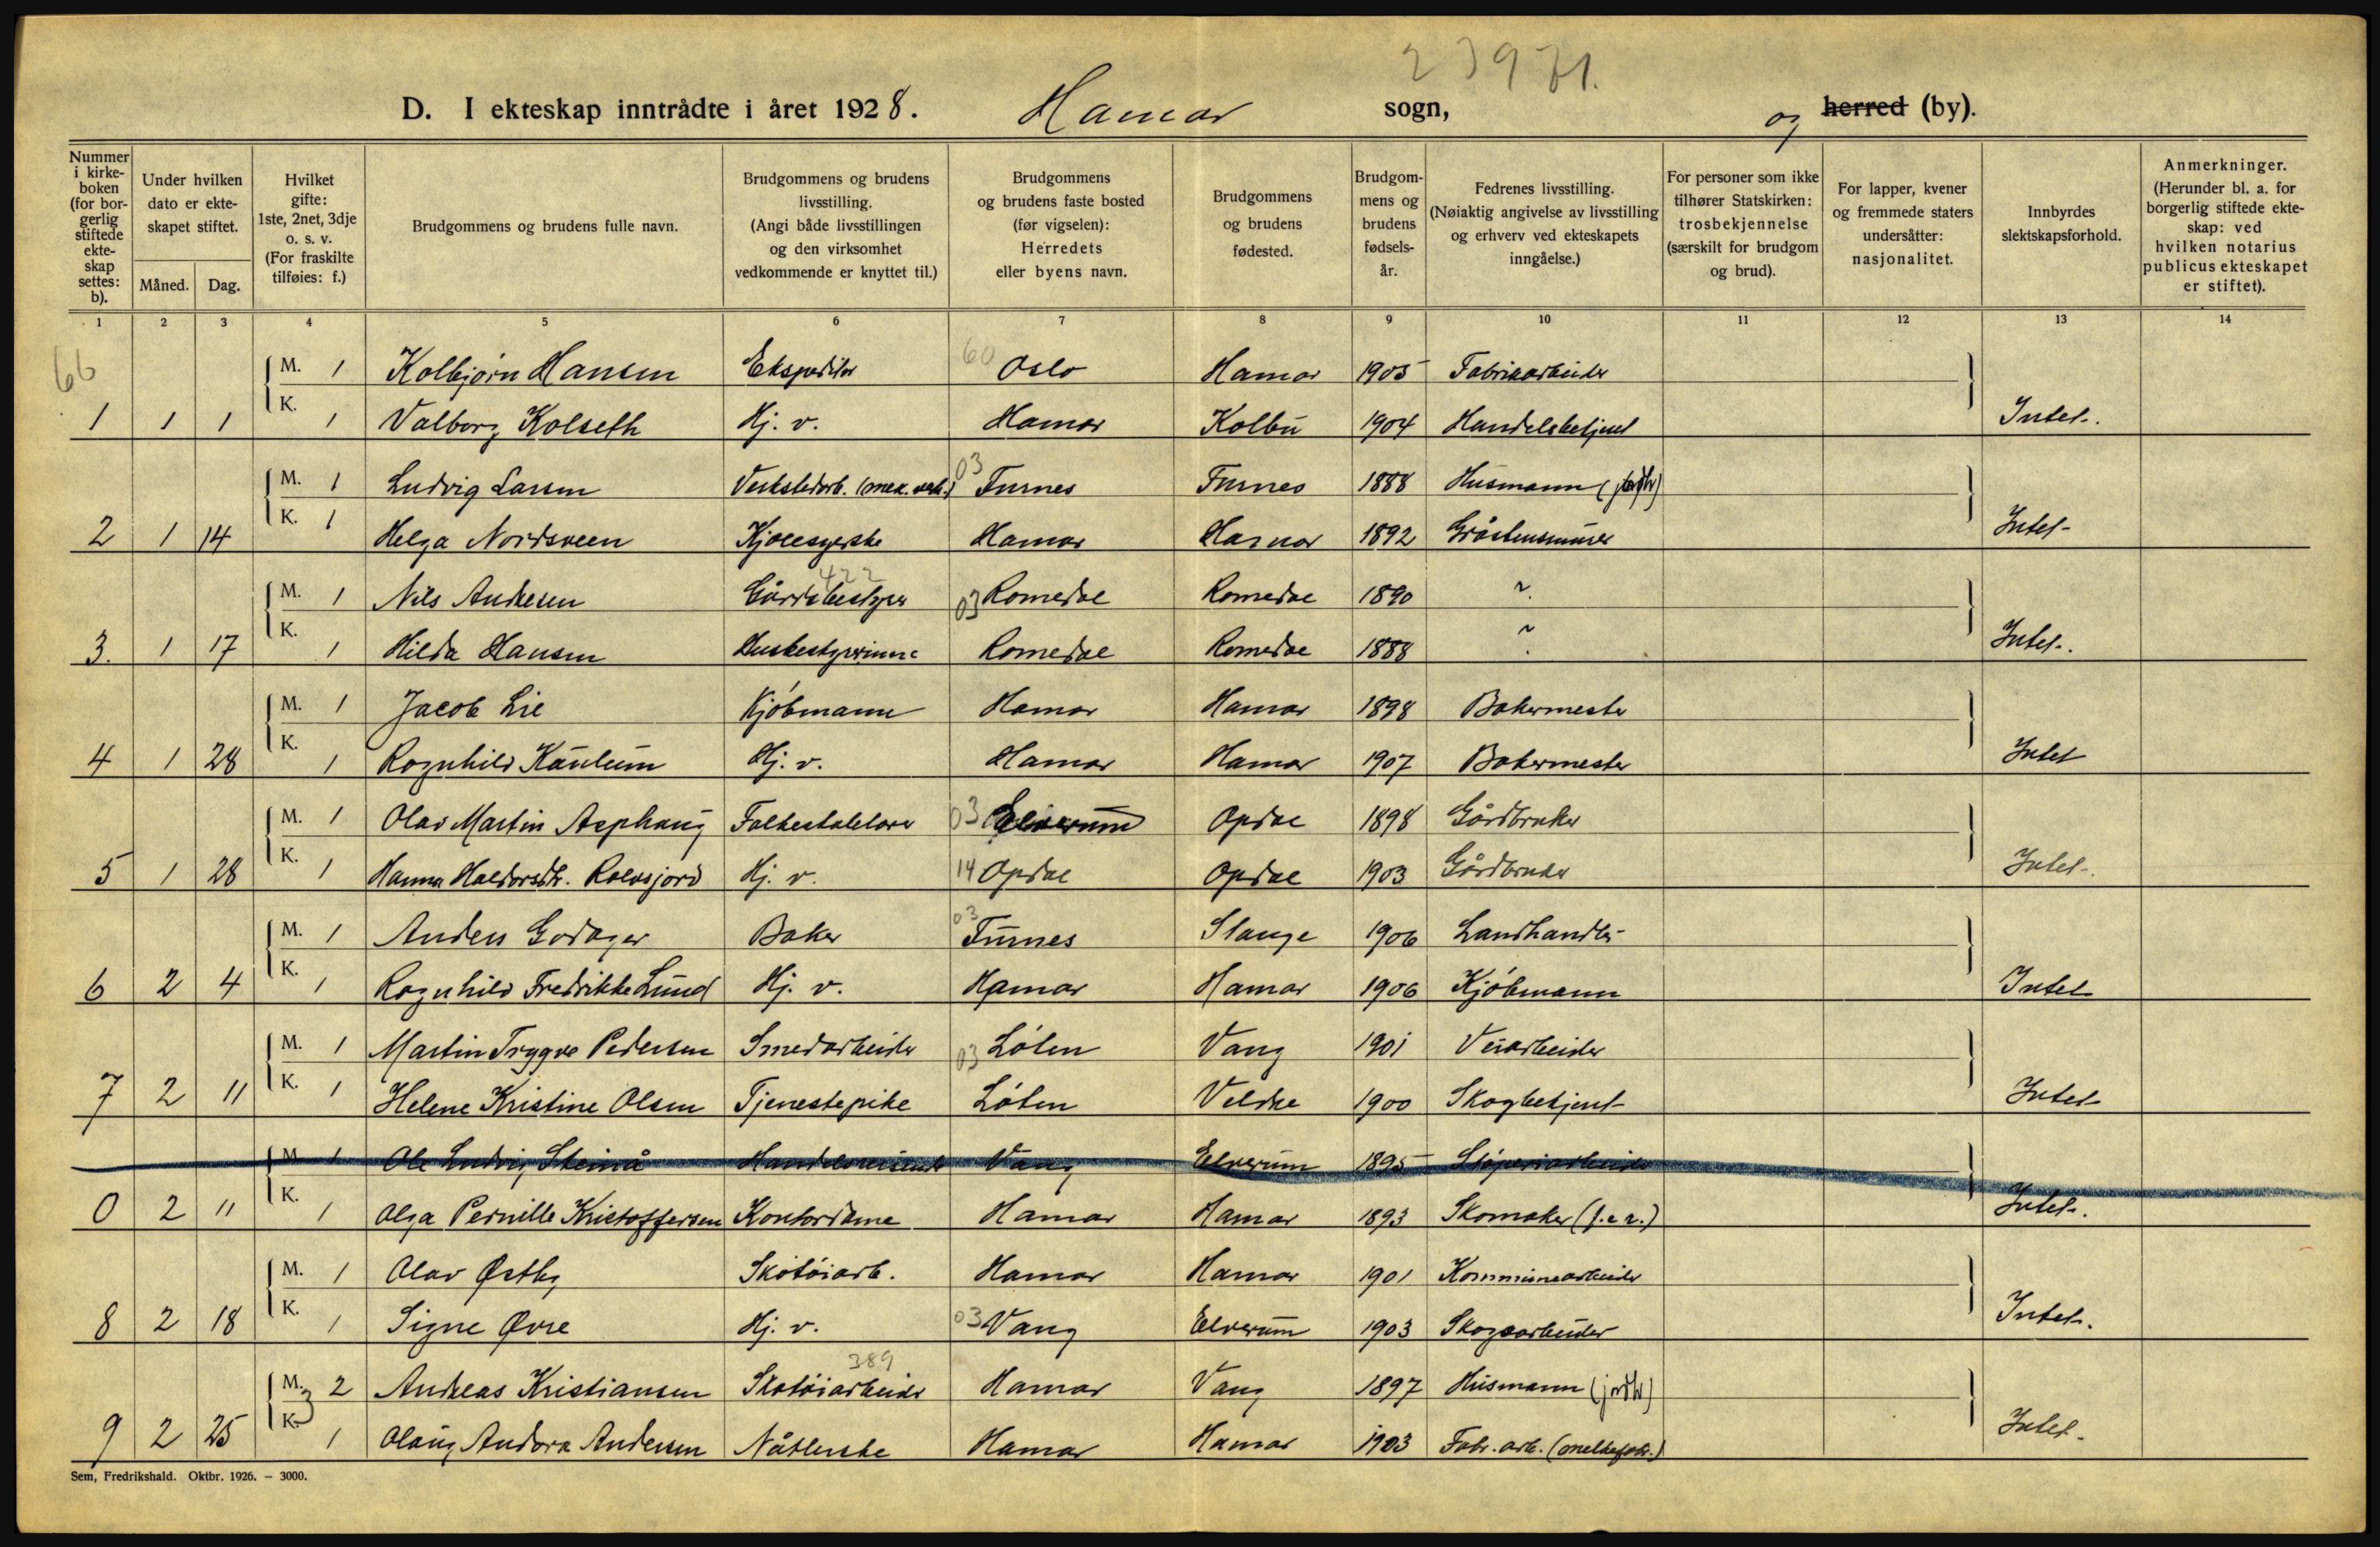 23971.
D. I ekteskap inntrådte i året 1928. Hamar sogn, og herred (by).
Nummer i kirke-boken (for bor-gerlig stiftede ekte-skap settes: b).
Under hvilken dato er ekte-skapet stiftet.
Måned. Dag.
Hvilket gifte: 1ste, 2net, 3dje o. s. v. (For fraskilte tilføies: f.)
Brudgommens og brudens fulle navn.
Brudgommens og brudens livsstilling. (Angi både livsstillingen og den virksomhet vedkommende er knyttet til.)
Brudgommens og brudens faste bosted (før vigselen): Herredets eller byens navn.
Brudgommens og brudens fødested.
Brudgom-mens og brudens fødsels-år.
Fedrenes livsstilling. (Nøiaktig angivelse av livsstilling og erhverv ved ekteskapets inngåelse.)
For personer som ikke tilhører Statskirken: trosbekjennelse (særskilt for brudgom og brud).
For lapper, kvener og fremmede staters undersåtter: nasjonalitet.
Innbyrdes slektskapsforhold.
Anmerkninger. (Herunder bl. a. for borgerlig stiftede ekte-skap: ved hvilken notarius publicus ekteskapet er stiftet).
1 2 3 4 5 6 7 8 9 10 11 12 13 14
66 M. 1 Kolbjørn Hansen Ekspeditør 60 Oslo Hamar 1905 Fabrikarbeider
1 1 1 K. 1 Valborg Kolseth Hj. v. Hamar Kolbu 1904 Handelsbetjent Intet.
M. 1 Ludvig Larsen Verkstedarb. (mek. verk.) 03 Furnes Furnes 1888 Husmann (jordbr)
2 1 14 K. 1 Helga Nordsveen Kjolesyerske Hamar Hamar 1892 Gråstensmurer Intet
M. 1 Nils Andresen Gårdsbestyrer 422 03 Romedal Romedal 1890 ~
3. 1 17 K. 1 Hilda Hansen Husbestyrerinne Romedal Romedal 1888 ~ Intet.
M. 1 Jacob Lie Kjøbmann Hamar Hamar 1898 Bakermester
4 1 28 K. 1 Ragnhild Kaulum Hj. v. Hamar Hamar 1907 Bakermester Intet
M. 1 Olav Martin Asphaug Folkeskolelærer 03 Elverum Opdal 1898 Gårdbruker
5 1 28 K. 1 Hanna Haldorsdtr. Hj. v. 14 Opdal Opdal 1903 Gårdbruker Intet.
M. 1 Anders Godager Baker 03 Furnes Stange 1906 Landhandler
6 2 4 K. 1 Ragnhild Fredrikke Lund Hj. v. Hamar Hamar 1906 Kjøbmann Intet
M. 1 Martin Trygve Pedersen Smedarbeider 03 Løten Vang 1901 Veiarbeider
7 2 11 K. 1 Helene Kristine Olsen Tjenestepike Løten Veldre 1900 Skogbetjent Intet
M. 1 Ole Ludvig Steinå Handelsreisende Vang Elverum 1895 Støperiarbeider
0 2 11 K. 1 Olga Pernille Kristoffersen Kontordame Hamar Hamar 1893 Skomaker (f.e.r.) Intet.
M. 1 Olav Østby Skotøiarb. Hamar Hamar 1901 Kommunearbeider
8 2 18 K. 1 Signe Øvre Hj. v. 03 Vang Elverum 1903 Skogsarbeider Intet.
M. 3 2 Andreas Kristiansen Skotøiarbeider 389 Hamar Vang 1897 Husmann (jordbr)
9 2 25 K. 1 Olaug Andora Andersen Nåtlerske Hamar Hamar 1903 Fabr. arb. (melkefabr.) Intet.
Sem, Fredrikshald. Oktbr. 1926. – 3000.